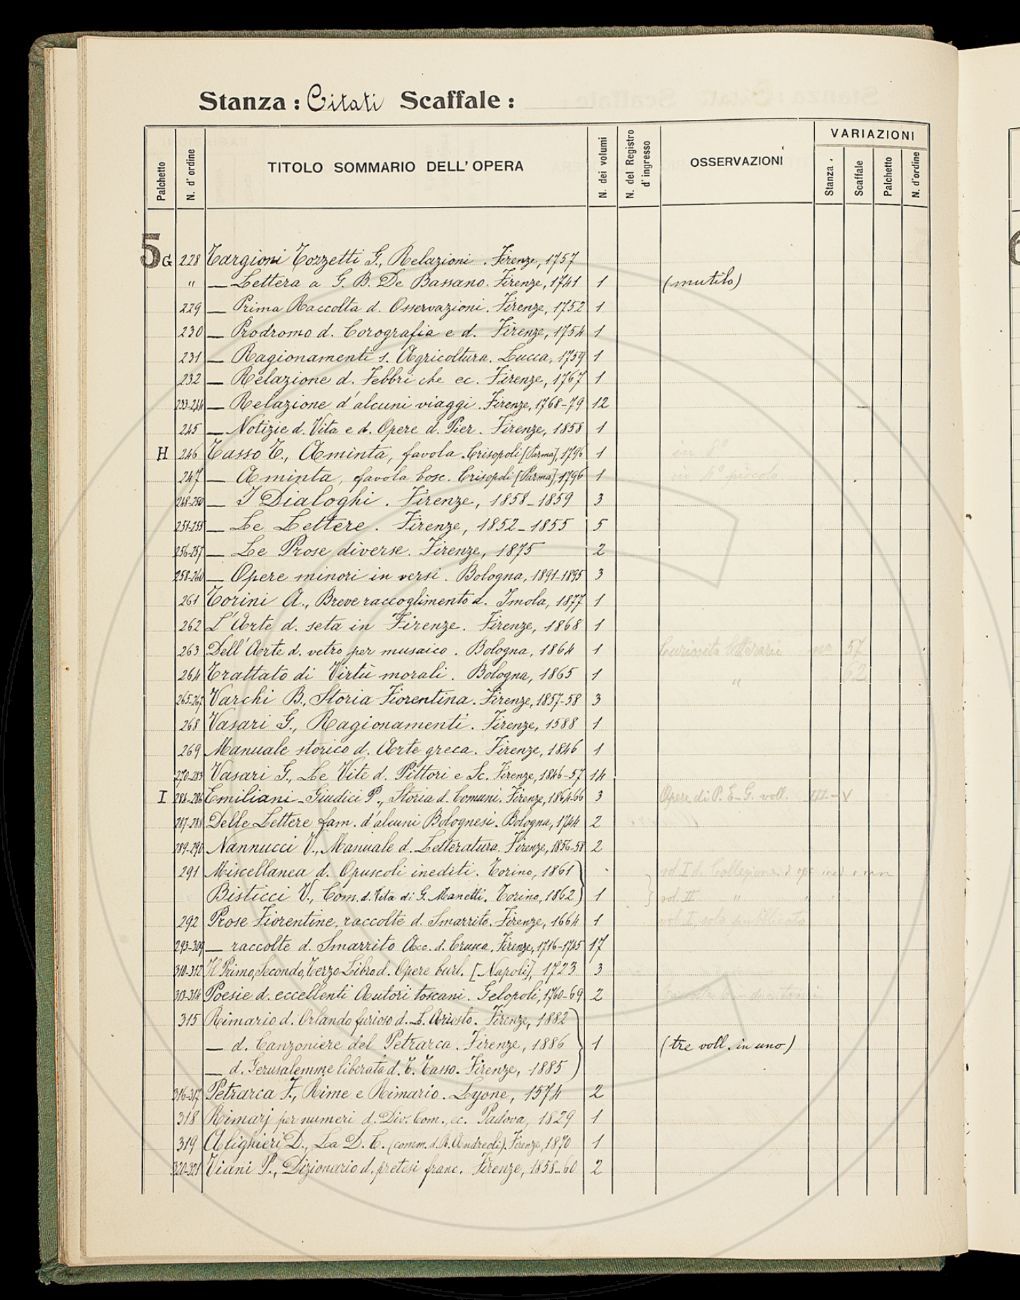 Stanza: Citati Scaffale:
Palchetto N. d'ordine TITOLO SOMMARIO DELL'OPERA N. dei volumi N. del Registro d'ingresso OSSERVAZIONI VARIAZIONI Stanza Scaffale Palchetto N. d'ordine
5 G 228 Targioni Tozzetti G., Relazioni. Firenze, 1757
" — Lettera a G. B. De Bassano. Firenze, 1741 1 (mutilo)
229 — Prima Raccolta d. Osservazioni. Firenze, 1752 1
230 — Prodromo d. Corografia e d. Firenze, 1754 1
231 — Ragionamenti s. Agricoltura. Lucca, 1759 1
232 — Relazione d. Febbri che ec. Firenze, 1767 1
233-244 — Relazione d'alcuni viaggi. Firenze, 1768-79 12
245 — Notizie d. Vita e d. Opere d. Pier. Firenze, 1858 1
H 246 Tasso T., Aminta, favola. Crisopoli [Parma], 1796 1 in f°
247 — Aminta, favola bosc. Crisopoli [Parma], 1796 1 in 4° piccolo
248-250 — I Dialoghi. Firenze, 1858-1859 3
251-255 — Le Lettere. Firenze, 1852-1855 5
256-257 — Le Prose diverse. Firenze, 1875 2
258-260 — Opere minori in versi. Bologna, 1891-1895 3
261 Torini A., Breve raccoglimento d. Imola, 1877 1
262 L'Arte d. seta in Firenze. Firenze, 1868 1
263 Dell'Arte d. vetro per musaico. Bologna, 1864 1 Curiosità letterarie 57
264 Trattato di Virtù morali. Bologna, 1865 1 " 62
265-267 Varchi B., Storia Fiorentina. Firenze, 1857-58 3
268 Vasari G., Ragionamenti. Firenze, 1588 1
269 Manuale storico d. Arte greca. Firenze, 1846 1
270-283 Vasari G., Le Vite d. Pittori e Sc. Firenze, 1846-57 14
I 284-286 Emiliani-Giudici P., Storia d. Comuni. Firenze, 1864-66 3 Opere di P. E-G. voll. III-V
287-288 Delle Lettere fam. d'alcuni Bolognesi. Bologna, 1744 2
289-290 Nannucci V., Manuale d. Letteratura. Firenze, 1856-58 2
291 Miscellanea d. Opuscoli inediti. Torino, 1861 vol. I d. Collezione d.
Bisticci V., Com. d. Vita di G. Manetti. Torino, 1862 1 vol. II "
292 Prose Fiorentine, raccolte d. Smarrito. Firenze, 1664 1 vol. I, solo pubblicato
293-309 — raccolte d. Smarrito Acc. d. Crusca. Firenze, 1716-1745 17
310-312 Il Primo, Secondo, Terzo Libro d. Opere burl. [Napoli], 1723 3
313-314 Poesie d. eccellenti Autori toscani. Gelopoli, 1760-69 2
315 Rimario d. Orlando furioso d. L. Ariosto. Firenze, 1882
— d. Canzoniere del Petrarca. Firenze, 1886 1 (tre voll. in uno)
— d. Gerusalemme liberata d. T. Tasso. Firenze, 1885
316-317 Petrarca F., Rime e Rimario. Lyone, 1574 2
318 Rimarj per numeri d. Div. Com., ec. Padova, 1829 1
319 Alighieri D., La D. C. (comm. d. R. Andreoli). Firenze, 1870 1
320-321 Viani P., Dizionario d. pretesi franc. Firenze, 1858-60 2